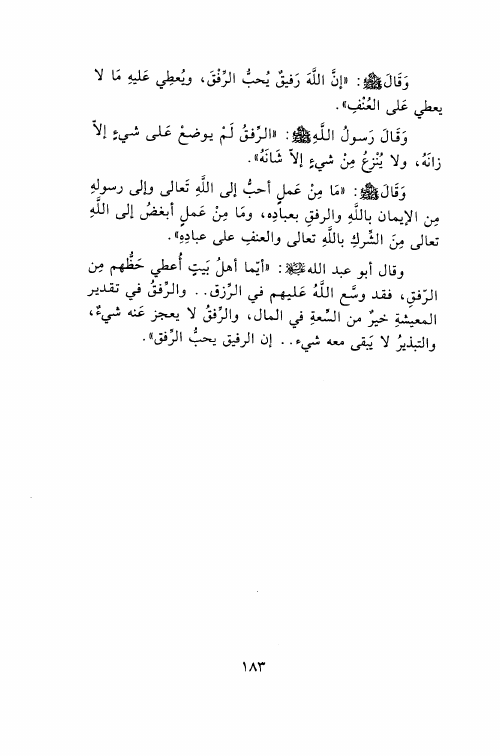 وَقَالَ ﷺ: «إنَّ اللَّهَ رَفيقٌ يُحبُّ الرِّفْقَ، ويُعطِي عَليهِ مَا لا
يعطي عَلى العُنْفِ».
وَقَالَ رَسولُ اللَّهِ ﷺ: «الرِّفقُ لَمْ يوضعْ عَلى شيءٍ إلاّ
زانَهُ، ولا يُنْزعُ مِنْ شيءٍ إلاّ شَانَهُ».
وَقَالَ ﷺ: «مَا مِنْ عَملٍ أحبُّ إلى اللَّهِ تَعالى وإلى رسولهِ
مِن الإيمان باللَّهِ والرفقِ بعبادِه، ومَا مِنْ عَملٍ أبغضُ إلى اللَّهِ
تعالى مِنَ الشّركِ باللَّهِ تعالى والعنفِ على عبادِهِ».
وقال أبو عبد الله: «أيّما أهلُ بَيتٍ أُعطي حَظُّهم مِن
الرّفقِ، فقد وسَّع اللَّهُ عَليهم في الرّزق.. والرِّفقُ في تقدير
المعيشةِ خيرٌ من السِّعةِ في المال، والرِّفقُ لا يعجز عَنه شيءٌ،
والتبذيرُ لا يَبقى معه شيء.. إن الرفيق يحبُّ الرِّفق».
١٨٣